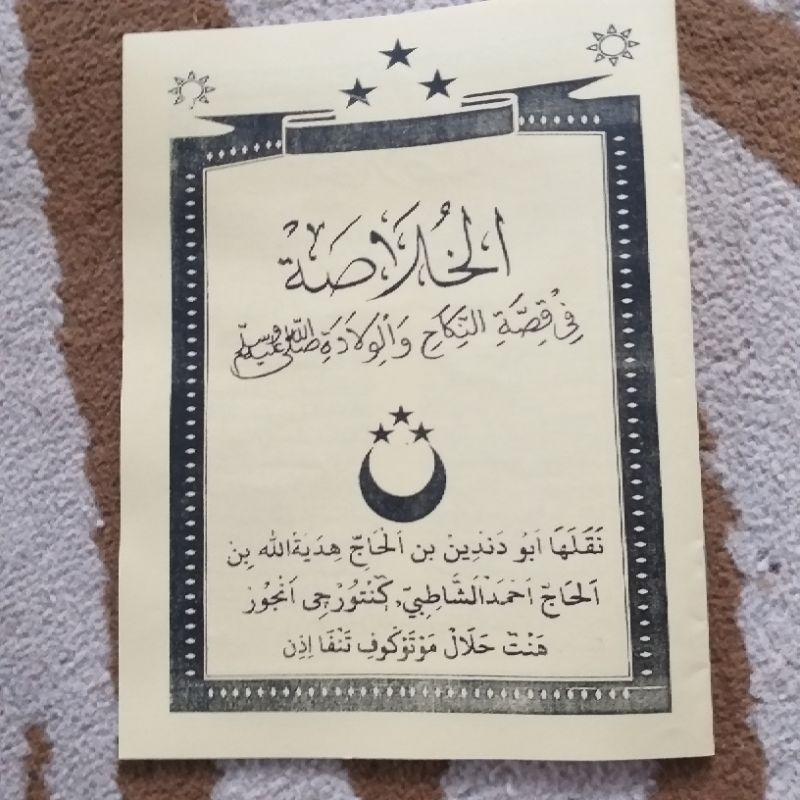 الخُلَاصَةْ
فِى قِصَّةِ النِّكَاحِ وَالْوِلَادَةِ صَلَّى اللّٰه عَلَيْهِ وَسَلَّمْ
نَقَلَهَا اَبُو دَنْدِيْنْ بن اَلْحَاجّ هِدَيَةْ الله بِنْ
اَلحَاجّ اَحْمَدْ الشَّاطِبِيّ، كَنْتُوْرْ جِى اَنْجُوْرْ
هَنْتْ حَلَالْ مَوْتَوْكَوفِ تَنْفَا اِذِنْ